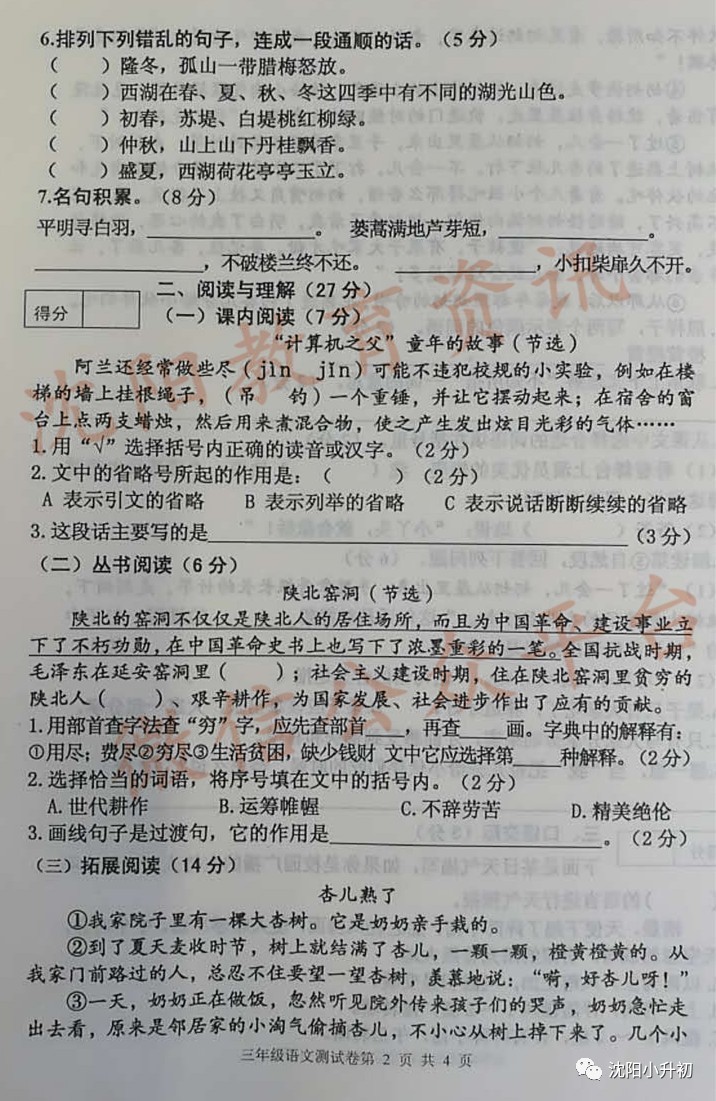 6.排列下列错乱的句子，连成一段通顺的话。（5分）
（　　）隆冬，孤山一带腊梅怒放。
（　　）西湖在春、夏、秋、冬这四季中有不同的湖光山色。
（　　）初春，苏堤、白堤桃红柳绿。
（　　）仲秋，山上山下丹桂飘香。
（　　）盛夏，西湖荷花亭亭玉立。
7.名句积累。（8分）
平明寻白羽，＿＿＿＿＿＿＿。 蒌蒿满地芦芽短，＿＿＿＿＿＿＿。
＿＿＿＿＿＿＿，不破楼兰终不还。 ＿＿＿＿＿＿＿，小扣柴扉久不开。
得分
二、阅读与理解（27分）
（一）课内阅读（7分）
“计算机之父”童年的故事（节选）
阿兰还经常做些尽（jìn　jǐn）可能不违犯校规的小实验，例如在楼
梯的墙上挂根绳子，（吊　钓）一个重锤，并让它摆动起来；在宿舍的窗
台上点两支蜡烛，然后用来煮混合物，使之产生发出炫目光彩的气体……
1.用“√”选择括号内正确的读音或汉字。（2分）
2.文中的省略号所起的作用是：（　　）（2分）
A 表示引文的省略　B 表示列举的省略　C 表示说话断断续续的省略
3.这段话主要写的是＿＿＿＿＿＿＿＿＿＿＿＿（3分）
（二）丛书阅读（6分）
陕北窑洞（节选）
陕北的窑洞不仅仅是陕北人的居住场所，而且为中国革命、建设事业立
下了不朽功勋，在中国革命史书上也写下了浓墨重彩的一笔。全国抗战时期，
毛泽东在延安窑洞里（　　）；社会主义建设时期，住在陕北窑里贫穷的
陕北人（　　）、艰辛耕作，为国家发展、社会进步作出了应有的贡献。
1.用部首查字法查“穷”字，应先查部首＿＿，再查＿＿画。字典中的解释有：
①用尽；费尽②穷尽③生活贫困，缺少钱财 文中它应选择第＿＿种解释。（2分）
2.选择恰当的词语，将序号填在文中的括号内。（2分）
A.世代耕作　B.运筹帷幄　C.不辞劳苦　D.精美绝伦
3.画线句子是过渡句，它的作用是＿＿＿＿＿＿＿＿＿＿。（2分）
（三）拓展阅读（14分）
杏儿熟了
①我家院子里有一棵大杏树。它是奶奶亲手栽的。
②到了夏天麦收时节，树上就结满了杏儿，一颗一颗，橙黄橙黄的。从
我家门前路过的人，总忍不住要望一望杏树，羡慕地说：“嗬，好杏儿呀！”
③一天，奶奶正在做饭，忽然听见院外传来孩子们的哭声，奶奶急忙走
出去看，原来是邻居家的小淘气偷摘杏儿，不小心从树上掉下来了。几个小
三年级语文测试卷第 2 页 共 4 页
沈阳教育资讯
微信公众平台
沈阳小升初